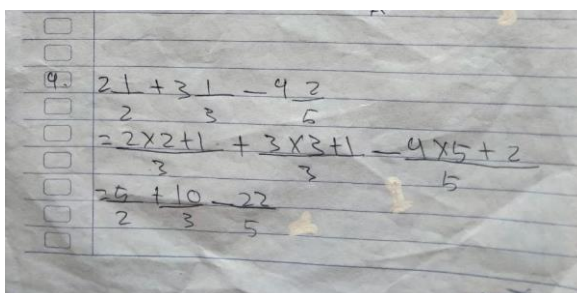 9. 2 1/2 + 3 1/3 - 4 2/5
= 2×2+1/3 + 3×3+1/3 - 4×5+2/5
= 5/2 + 10/3 - 22/5